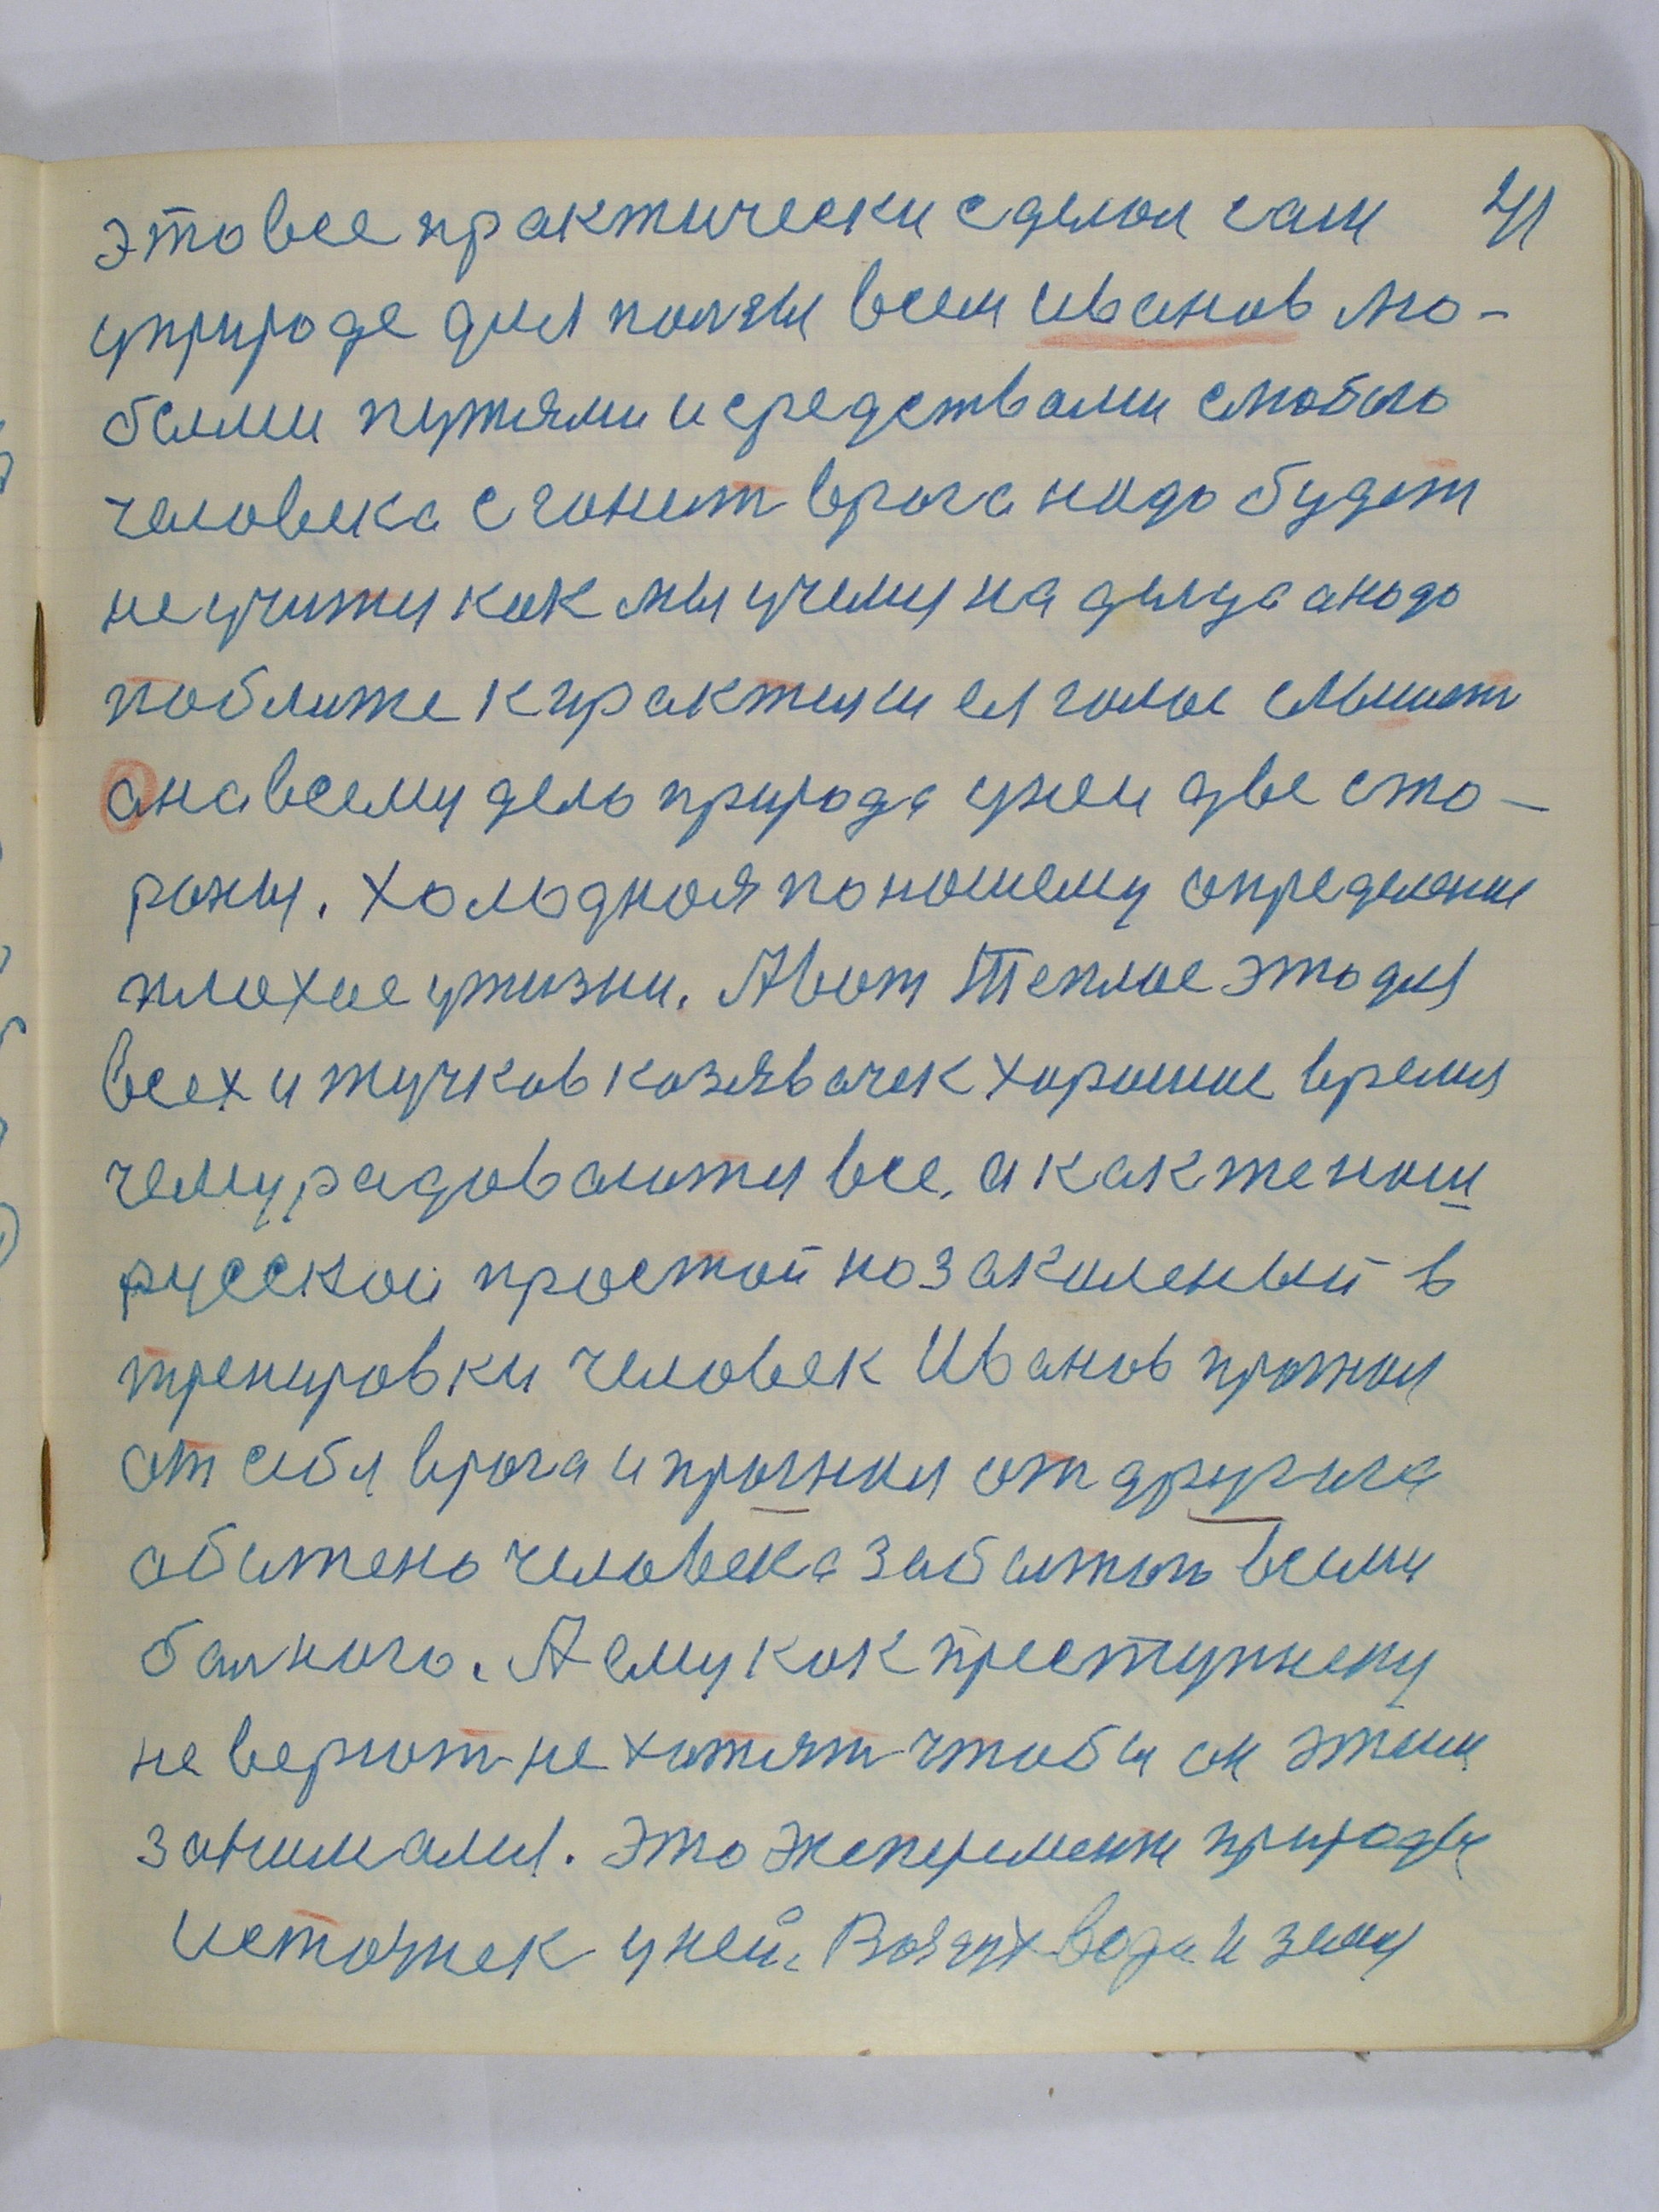 это все практически сделал сам 41
у природе для ползы всем Иванов лю-
быми путями и средствами с любого
человека сгонит врага надо будет
не учится как мы учемся на дядя а надо
поближе к практики ея голос слышит
она всему дело природа у нея две сто-
роны. Холодная по нашему определению
плохое у жизни. А вот Теплое это для
всех и жучков козявачек хорошое время
чему радоваются все. а как же наш
русской простой но закаленый в
тренировки человек Иванов прогнал
от себя врага и прогнал от другога
обижено человека забытого всеми
балного. А ему как преступнеку
не верют не хотят чтобы он этим
занимался. Это эксперемент природы
источнек у ней. Воздух вода и земля